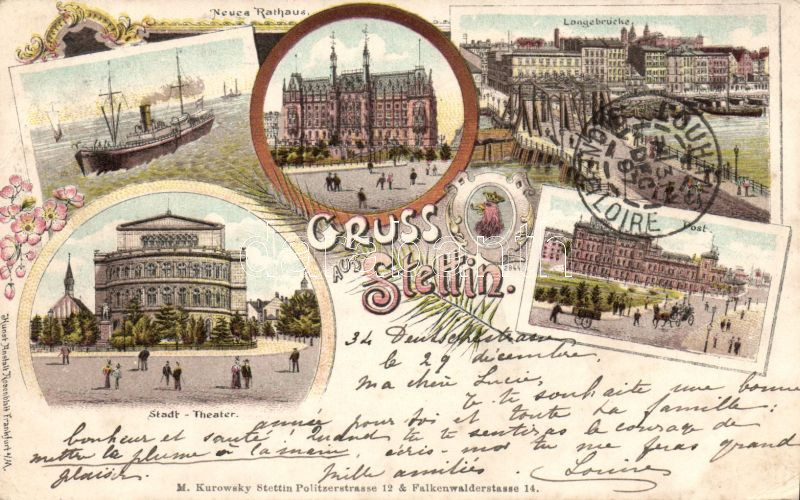 Neues Rathaus.
Langebrücke.
LOUHANS
SAONE-ET-LOIRE
Post.
GRUSS
AUS
Stettin.
Stadt - Theater.
Kunst-Anstalt Rosenblatt Frankfurt a/M.
34 Deutschestrasse
le 29 décembre.
Ma chère Lucie,
Je te souhaite une bonne
année pour toi et toute ta famille:
bonheur et santé! Quand tu te sentiras le courage de
mettre la plume à la main, écris-moi tu me feras grand
plaisir. Mille amitiés. Louise
M. Kurowsky Stettin Politzerstrasse 12 & Falkenwalderstasse 14.